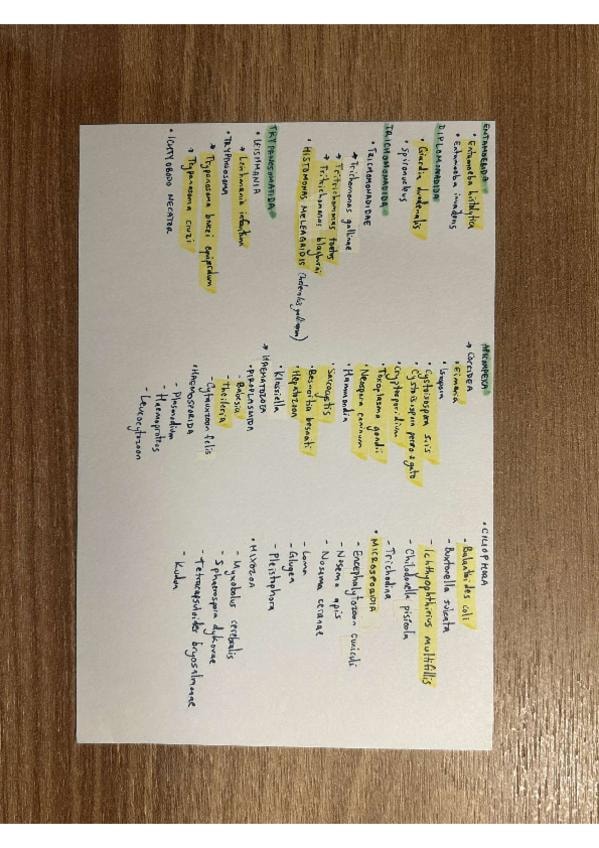 ENTAMOEBIDA
• Entamoeba histolytica
• Entamoeba invadens
DIPLOMONADIDA
• Giardia duodenalis
• Spironucleus
TRICHOMONADIDA
• TRICHOMONADIDAE
→ Trichomonas gallinae
→ Tritrichomonas foetus
→ Tritrichomonas blagburni
• HISTOMONAS MELEAGRIDIS (Heterakis gallinarum)
TRYPANOSOMATIDA
• LEISHMANIA
→ Leishmania infantum
• TRYPANOSOMA
→ Trypanosoma brucei equiperdum
→ Trypanosoma cruzi
• ICHTYOBODO NECATOR
APICOMPLEXA
→ COCCIDEA
• Eimeria
• Isospora
• Cystoisospora suis
• Cystoisospora perro y gato
• Cryptosporidium
• Toxoplasma gondii
• Neospora caninum
• Hammondia
• Sarcocystis
• Besnoitia besnoiti
• Hepatozoon
• Klossiella
→ HAEMATOZOEA
• PIROPLASMIDA
- Babesia
- Theileria
- Cytauxzoon felis
• HAEMOSPORIDA
- Plasmodium
- Haemoproteus
- Leucocytozoon
• CILIOPHORA
- Balantioides coli
- Buxtonella sulcata
- Ichthyophthirius multifiliis
- Chilodonella piscicola
- Trichodina
• MICROSPORIDIA
- Encephalytozoon cuniculi
- Nosema apis
- Nosema ceranae
- Loma
- Glugea
- Pleistophora
• MIXOZOA
- Myxobolus cerebralis
- Sphaerospora dykovae
- Tetracapsuloides bryosalmonae
- Kudoa